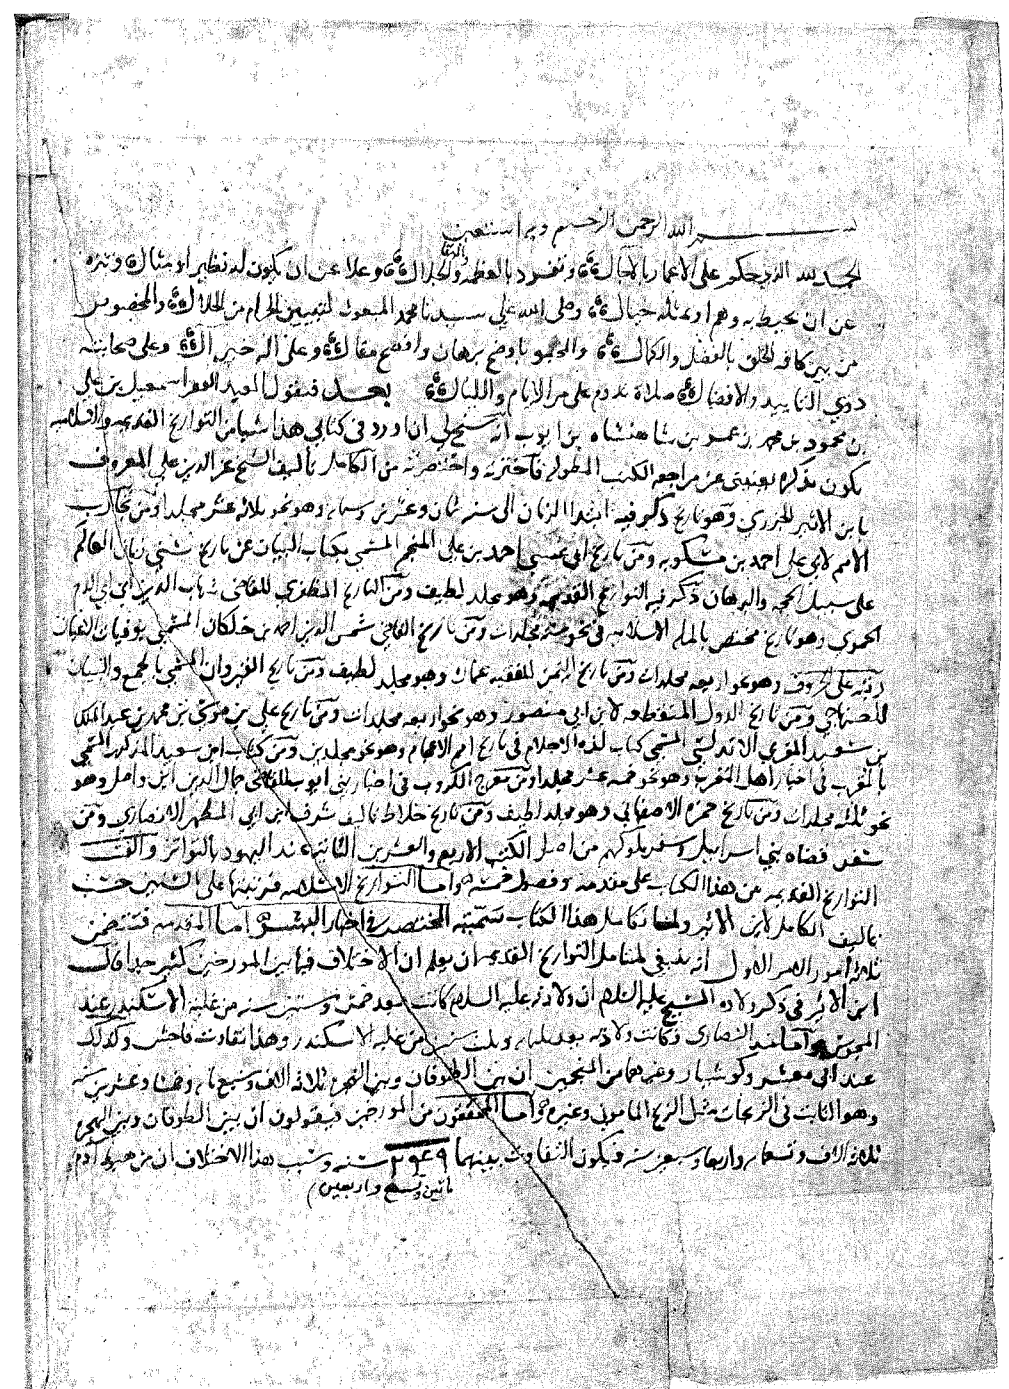 بسم الله الرحمن الرحيم وبه استعين
الحمد لله الذي حكم على الاعمار بالاجال وتفرد بالعظمة والبقا والجلال وعلا عن ان يكون له نظير او مثال وتنزه
عن ان يحيط به وهم او يمثله خيال وصلى الله على سيدنا محمد المبعوث لتبيين الحرام من الحلال والمخصوص
من بين كافه الخلق بالفضل والكمال باوضح برهان وافصح مقال وعلى اله خير ال وعلى صحابته
ذوي التاييد والافضال صلاة تدوم على مر الايام والليال بعد فيقول العبد الفقير اسمعيل بن علي
بن محمود بن محمد بن عمر بن شاهنشاه بن ايوب انه سنح لي ان اورد في كتابي هذا شيا من التواريخ القديمه والاسلاميه
يكون تذكره يغنيني عن مراجعه الكتب المطوله فاخترته واختصرته من الكامل تاليف الشيخ عز الدين علي المعروف
بابن الاثير الجزري وهو تاريخ ذكر فيه ابتدا الزمان الى سنه ثمان وعشرين وستمايه وهو نحو ثلاثه عشر مجلدا ومن تجارب
الامم لابي علي احمد بن مسكويه ومن تاريخ ابي عيسى احمد بن علي المنجم المسمى بكتاب البيان عن تاريخ سني زمان العالم
على سبيل الحجه والبرهان ذكر فيه التواريخ القديمه وهو مجلد لطيف ومن التاريخ المظفري للقاضي شهاب الدين ابن ابي الدم
الحموي وهو تاريخ مختص بالمله الاسلاميه في نحو سته مجلدات ومن تاريخ القاضي شمس الدين احمد بن خلكان المسمى بوفيات الاعيان
رتبه على الحروف وهو نحو اربعه مجلدات ومن تاريخ اليمن للفقيه عماره وهو مجلد لطيف ومن تاريخ القيروان المسمى بالجمع والبيان
للصنهاجي ومن تاريخ الدول المنقطعه لابن ابي منصور وهو نحو اربعه مجلدات ومن تاريخ علي بن موسى بن محمد بن عبد الملك
بن سعيد المغربي الاندلسي المسمى كتاب لذه الاحلام في تاريخ امم الاعجام وهو نحو مجلدين ومن كتاب ابن سعيد المذكور المسمى
بالمغرب في اخبار اهل المغرب وهو نحو خمسه عشر مجلدا ومن مفرج الكروب في اخبار بني ايوب للقاضي جمال الدين ابن واصل وهو
نحو ثلثه مجلدات ومن تاريخ حمزه الاصفهاني وهو مجلد لطيف ومن تاريخ خلاط تاليف شرف ابن ابي المطهر الانصاري ومن
سفر قضاه بني اسرائيل وسفر ملوكهم من اصل الكتب الاربع والعشرين الثابته عند اليهود بالتواتر والفت
التواريخ القديمه من هذا الكتاب على مقدمه وفصول خمسه واما التواريخ الاسلاميه فرتبتها على السنين حسب
تاليف الكامل لابن الاثير ولما تكامل هذا الكتاب سميته المختصر في اخبار البشر اما المقدمه فتتضمن
ثلاثة امور الامر الاول انه ينبغي لمتامل التواريخ القديمه ان يعلم ان الاختلاف فيها بين المورخين كثير جدا قال
ابن الاثير في ذكر ولاده المسيح عليه السلام ان ولادته عليه السلام كانت بعد خمس وستين سنه من غلبه الاسكندر عند
المجوس واما عند النصارى فكانت ولادته بعد ثلثمايه وثلث سنين من غلبه الاسكندر وهذا تفاوت فاحش وكذلك
عند ابي معشر وكوشيار وغيرهما من المنجمين ان بين الطوفان وبين الهجره ثلاثه الاف وسبع مايه وخمسا وعشرين سنه
وهو الثابت في الزيجات مثل الزيج الماموني وغيره واما المحققون من المورخين فيقولون ان بين الطوفان وبين الهجره
ثلاثه الاف وتسعمايه واربعا وسبعين سنه ويكون التفاوت بينهما ٢٤٩ سنه وسبب هذا الاختلاف ان من هبوط ادم
مائتين وتسع واربعين